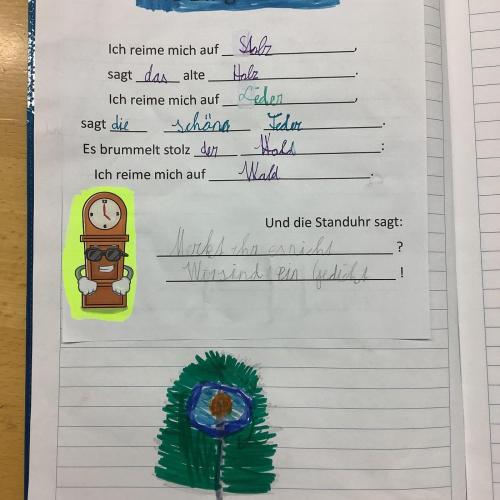 Ich reime mich auf Stolz,
sagt das alte Holz.
Ich reime mich auf Leder,
sagt die schöne Feder.
Es brummelt stolz der Wald:
Ich reime mich auf Wald.
Und die Standuhr sagt:
Merkt ihr es nicht?
Wir sind ein Gedicht!